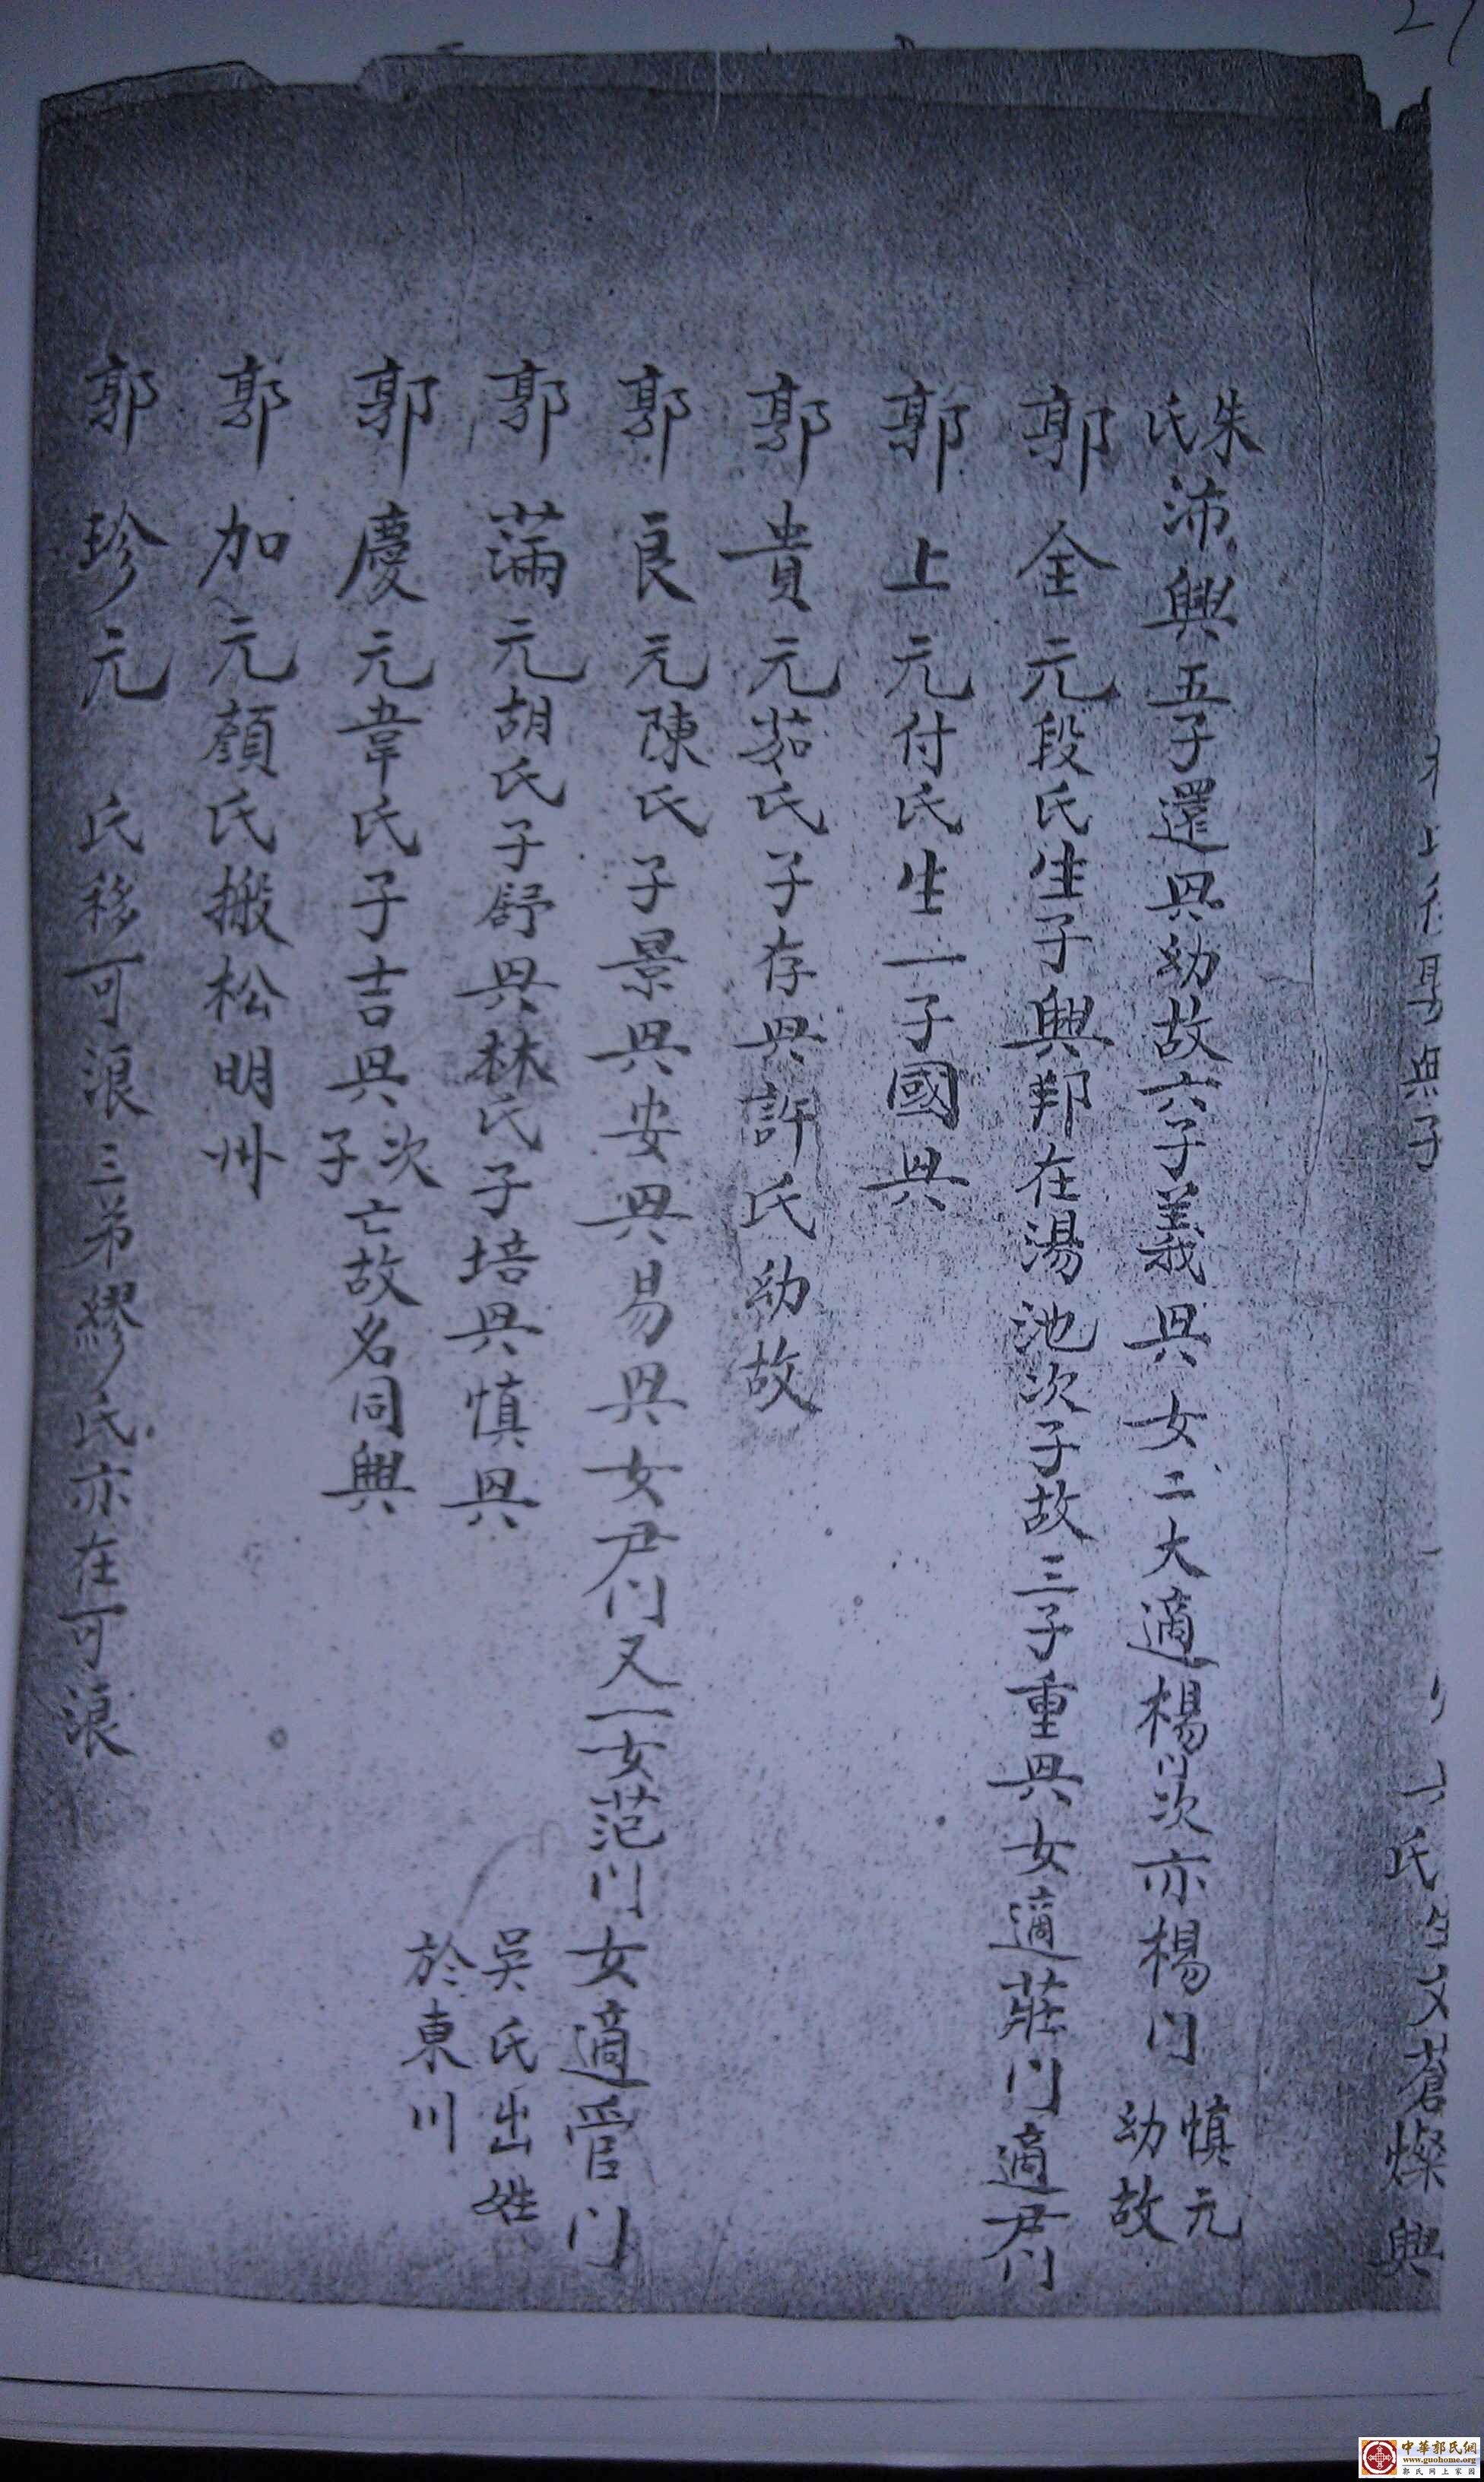 27
氏 蒼燦興
朱氏沛興五子還具幼故六子義具女二大適楊门次亦楊门慎元幼故
郭全元段氏生子興邦在湯池次子故三子重具女適莊门適君门
郭上元付氏生一子國具
郭貴元茹氏子存具許氏幼故
郭良元陳氏子景具安具易具女尹门又一女范门女適官门
郭滿元胡氏子舒具林氏子培具慎具吳氏出姓於東川
郭慶元韋氏子吉具次子亡故名同興
郭加元顏氏搬松明州
郭珍元 氏移可浪三弟繆氏亦在可浪
中華郭氏網
www.guohome.org
郭氏网上家园